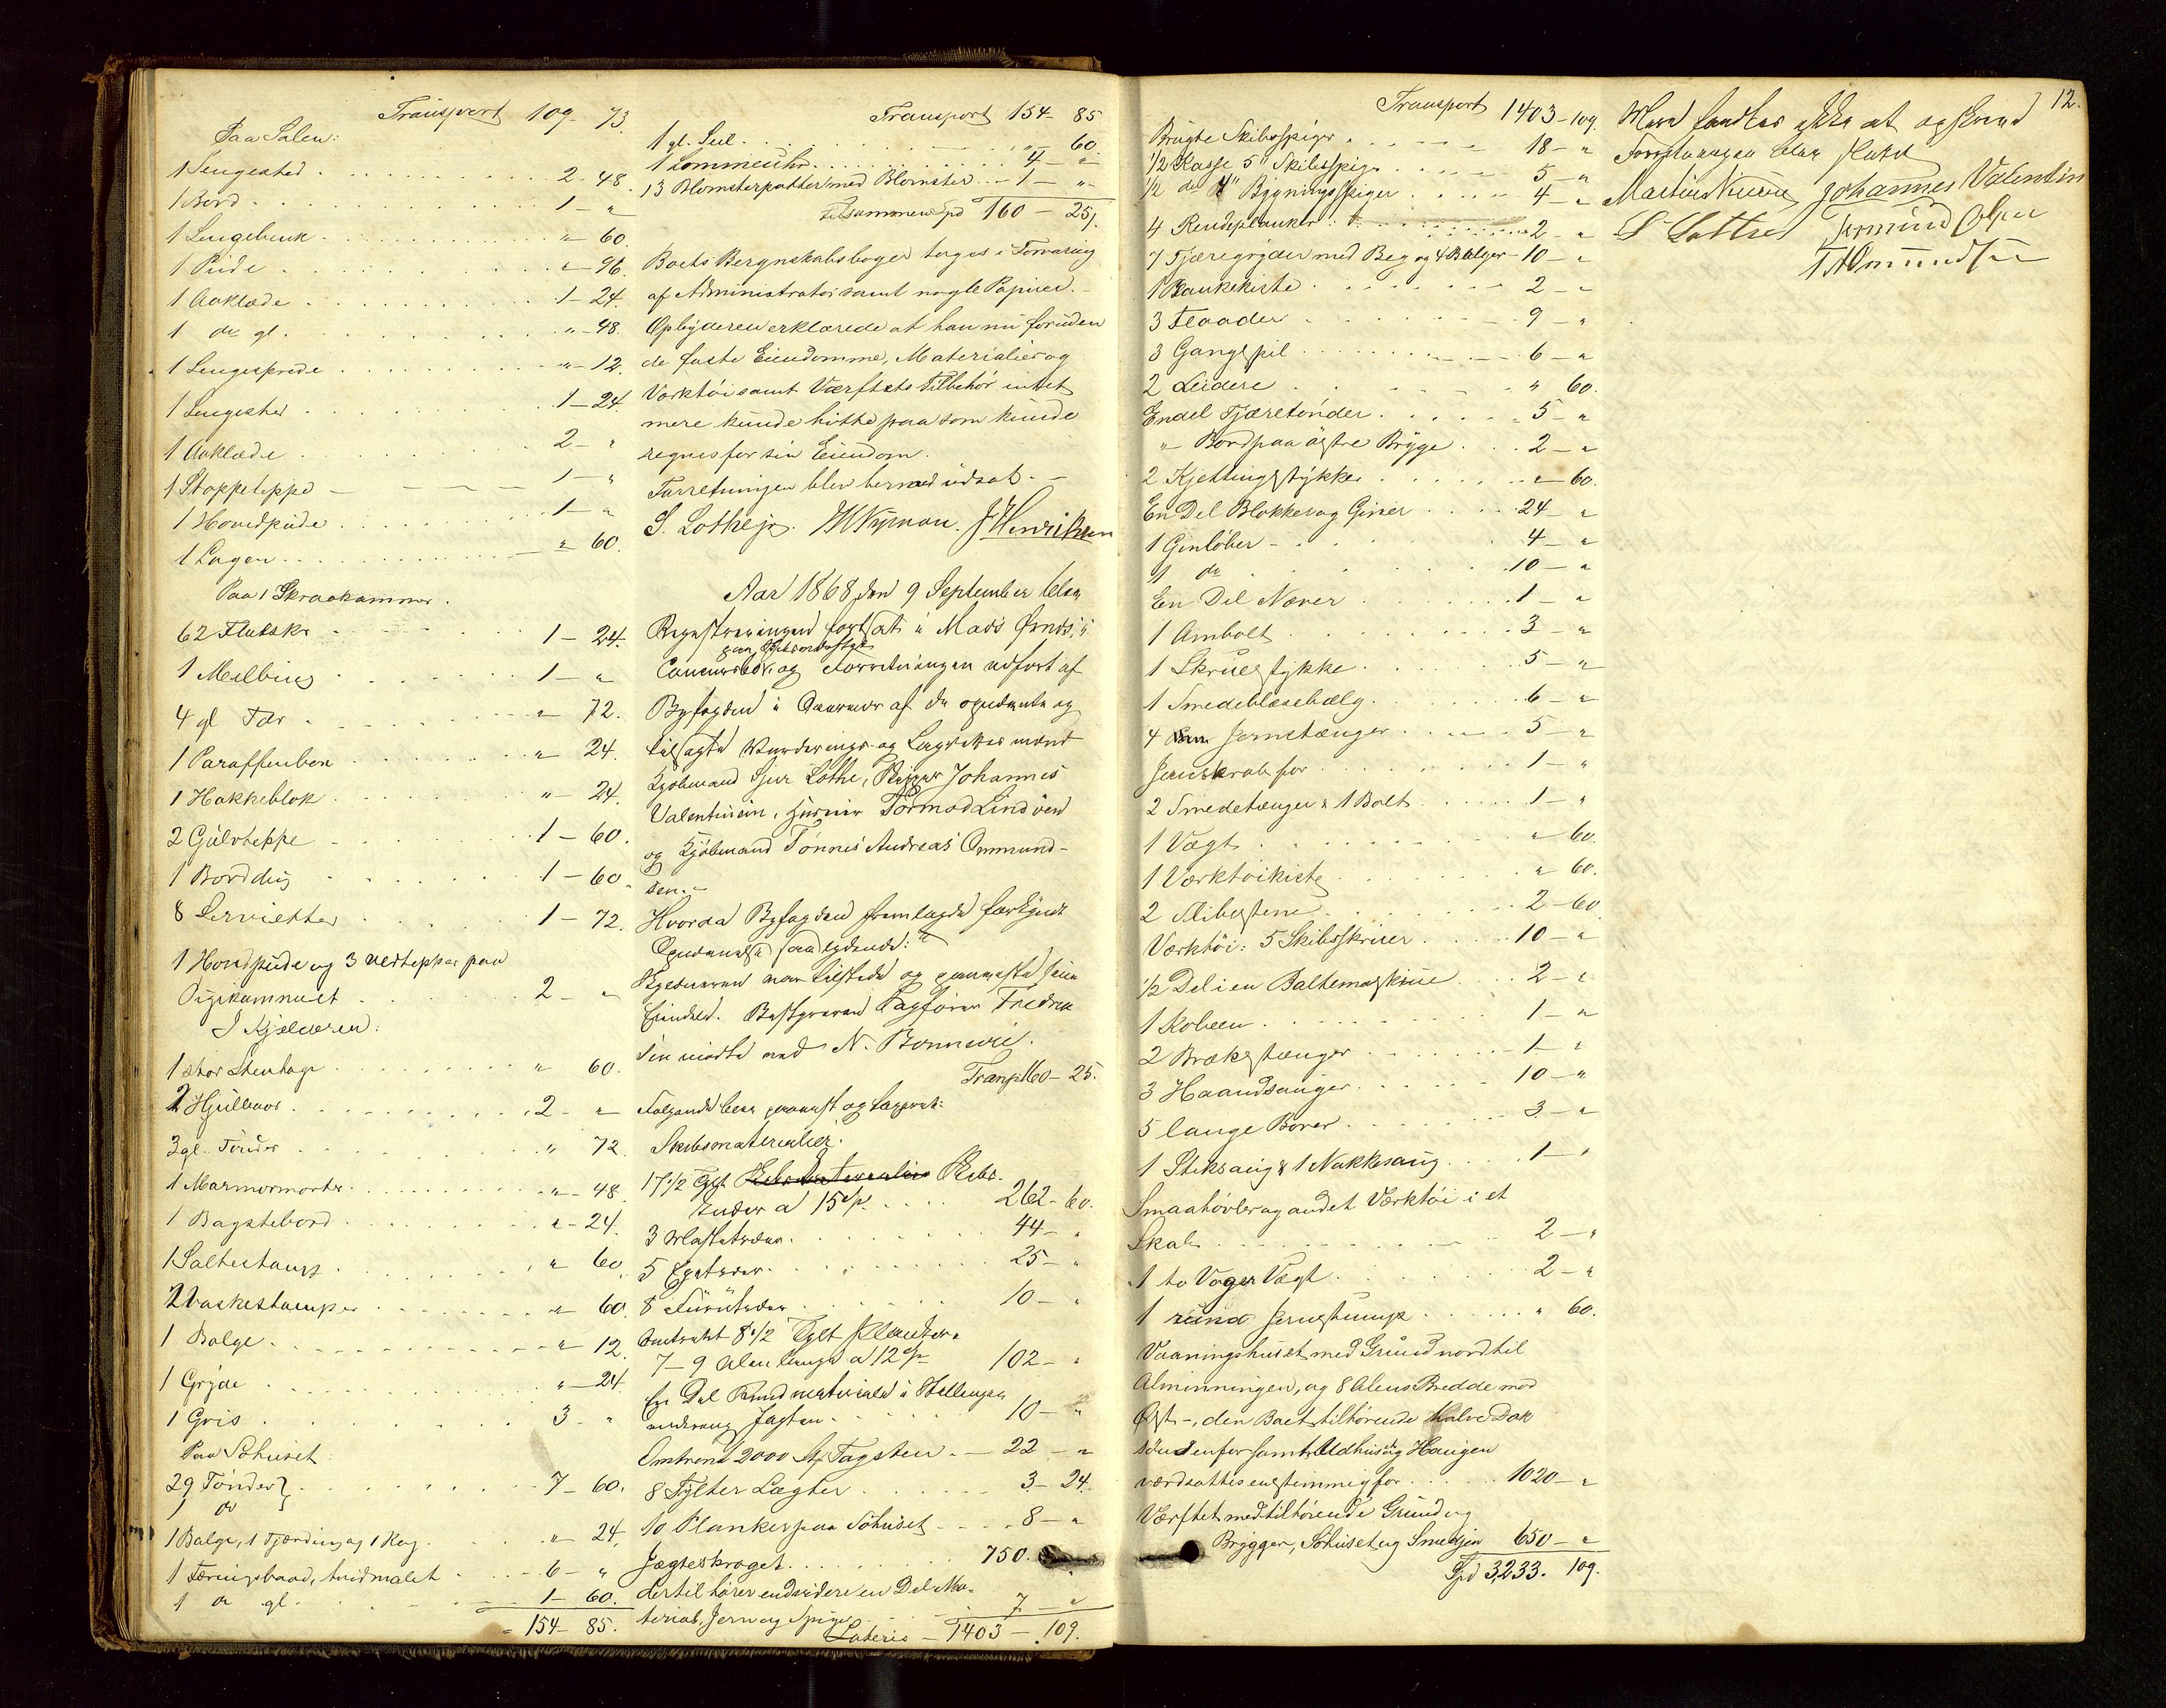 Transport 109 - 73.
Paa Salen:
1 Sengested 2 - 48.
1 Bord 1 - "
1 Sengebenk " - 60.
1 Pude " - 96.
1 Aaklæde 1 - 24.
1 do gl. " - 48.
1 Sengesprede " - 12.
1 Sengested 1 - 24.
1 Aaklæde 2 - "
1 Stoppeteppe 1 - "
1 Hovedpude 1 - "
1 Lagen " - 60.
Paa 1 Skraakammer.
62 Flasker 1 - 24.
1 Melbing 1 - "
4 gl Tdr " - 72.
1 Paraffinben " - 24.
1 Hakkeblok " - 24.
2 Gulvteppe 1 - 60.
1 Borddug 1 - 60.
8 Servietter 1 - 72.
1 Hovedpude og 3 vedtepper paa
Pigekammeret 2 - "
I Kjelderen:
1 stor Stentøi " 60.
2 Hjulbaar 2 - "
3 gl. Tønder " 72.
1 Marmormorter " - 48
1 Bagstebord " - 24.
1 Saltestamp " 60.
2 Vaskestamper " 60.
1 Balge " 12.
1 Gryde " - 24.
1 Gris 3 - "
Paa Søhuset
29 Tønder } 7 - 60.
1 do }
1 Balge, 1 Fjerding og 1 Kag " - 24.
1 Færingsbaad, hvidmalet 6 - "
1 do gl. 1 - 60.
154 - 85.
Transport 154 - 85
1 gl. Seil " - 60.
1 Lommeuhr 4 - "
13 Blomsterpotter med Blomster 1 - "
tilsammen Spd 160 - 25.
Boets Regnskabsbøger toges i Forvaring
af Administrator samt nogle Papirer. -
Opbyderen erklærede at han nu foruden
de faste Eiendomme, Materialier og
Værktøi samt Værftets tilbehör intet
mere kunde hitte paa som kunde
regnes for sin Eiendom.
Forretningen blev hermed udsat. -
S. Lothe jr. Nyman. J Henriksen
Aar 1868 den 9 September blev
Registreringen fortsat i Mads
Concursbo og Forretningen udført af
Byfogden i Overvær af de opnævnte og
tilsagte Vurderings og Lagrettes mænd
Kjøbmand Sjur Lothe, Rigger Johannes
Valentinsen, Tormod Lindøen
og Kjøbmand Tönnes Andreas Ommund-
sen. -
Hvorda Byfogden fremlagde forkyndt
Opnævnelse saalydende:
Opbyderen var tilstede og paaviste sine
Eiendele. Bestyreren Sagfører Fredrik-
sen mødte ved N. Bonnevie.
Transp 160 - 25.
Følgende blev paavist og taxeret:
Skibsmaterialier.
17 1/2 Tylt
a 15 262 - 60.
3 Mastetræer 44 - "
5 Egetræer 25 - "
8 Furutræer 10 - "
Omtrent 8 1/2 Tylt Planker
7 - 9 Alen lange a 12 102 - "
En Del Rundmateriale i Stillingen
omkring Jagten 10 - "
Omtrent 2000 St Tagsten 22 - "
8 Tylter Lægter 3 - 24.
10 Planker paa Søhuset 8 - "
Jægteskroget 750.
dertil hører endvidere en Del Ma-
terial, Jern og Spiger 7 - "
Lateris - 1403 - 109.
Transport 1403 - 109.
Brugte Skibsspiger 18 - "
1/2 Kasse 5" Skibsspiger 5 - "
1/2 do 4" Bygningsspiger 4 - "
4 Rendeplanker 2 - "
7 Tjæregryder med Beg og 4 Balger 10 - "
1 Bankekiste 2 - "
3 Flaader 9 - "
3 Gangspil 6 - "
2 Leidere " 60.
Endel Tjæretønder 5 - "
" Bord paa østre Brygge 2 - "
2 Kjettingstykker " 60.
En Del Blokker og Giner 24 - "
1 Ginløber 4 - "
11 do 10 - "
En Del Næver 1 - "
1 Ambolt 3 - "
1 Skruestykke 5 - "
1 Smedeblæsebælg 6 - "
4 Jernstænger 5 - "
Jernskrab for 1 - "
2 Smedetænger & 1 Bolt 1 - "
1 Vægt " 60.
1 Værktøikiste " 60.
2 Slibestene 2 - 60
Værktøi: 5 Skibsskruer 10 - "
1/2 Del i en Boltemaskine 2 - "
1 Kobeen 1 - "
2 Brækstænger 1 - "
3 Haandsauger 10 - "
5 lange Borer 3 - "
1 Stiksaug & 1 Nakkesaug 1 - "
Smaahøvler og andet Værktøi i et
Skab 2 - "
1 to Voger Vægt 2 - "
1 rund Jernstump " 60.
Vaaningshuset med Grund nord til
Alminningen, og 8 Alens Bredde mod
Øst -, den Boet tilhørende Halve Dok
søndenfor samt Udhus og Haugen
værdsattes enstemmig for 1020 - "
Værftet med tilhørende Grund og
Brygger, Søhuset og Smedjen 650 - "
Spd 3,233. 109.
12.
Mere fandtes ikke at opskrive
Forretningen blev sluttet
Johannes Valentin
S Lothe
T A Omundsen